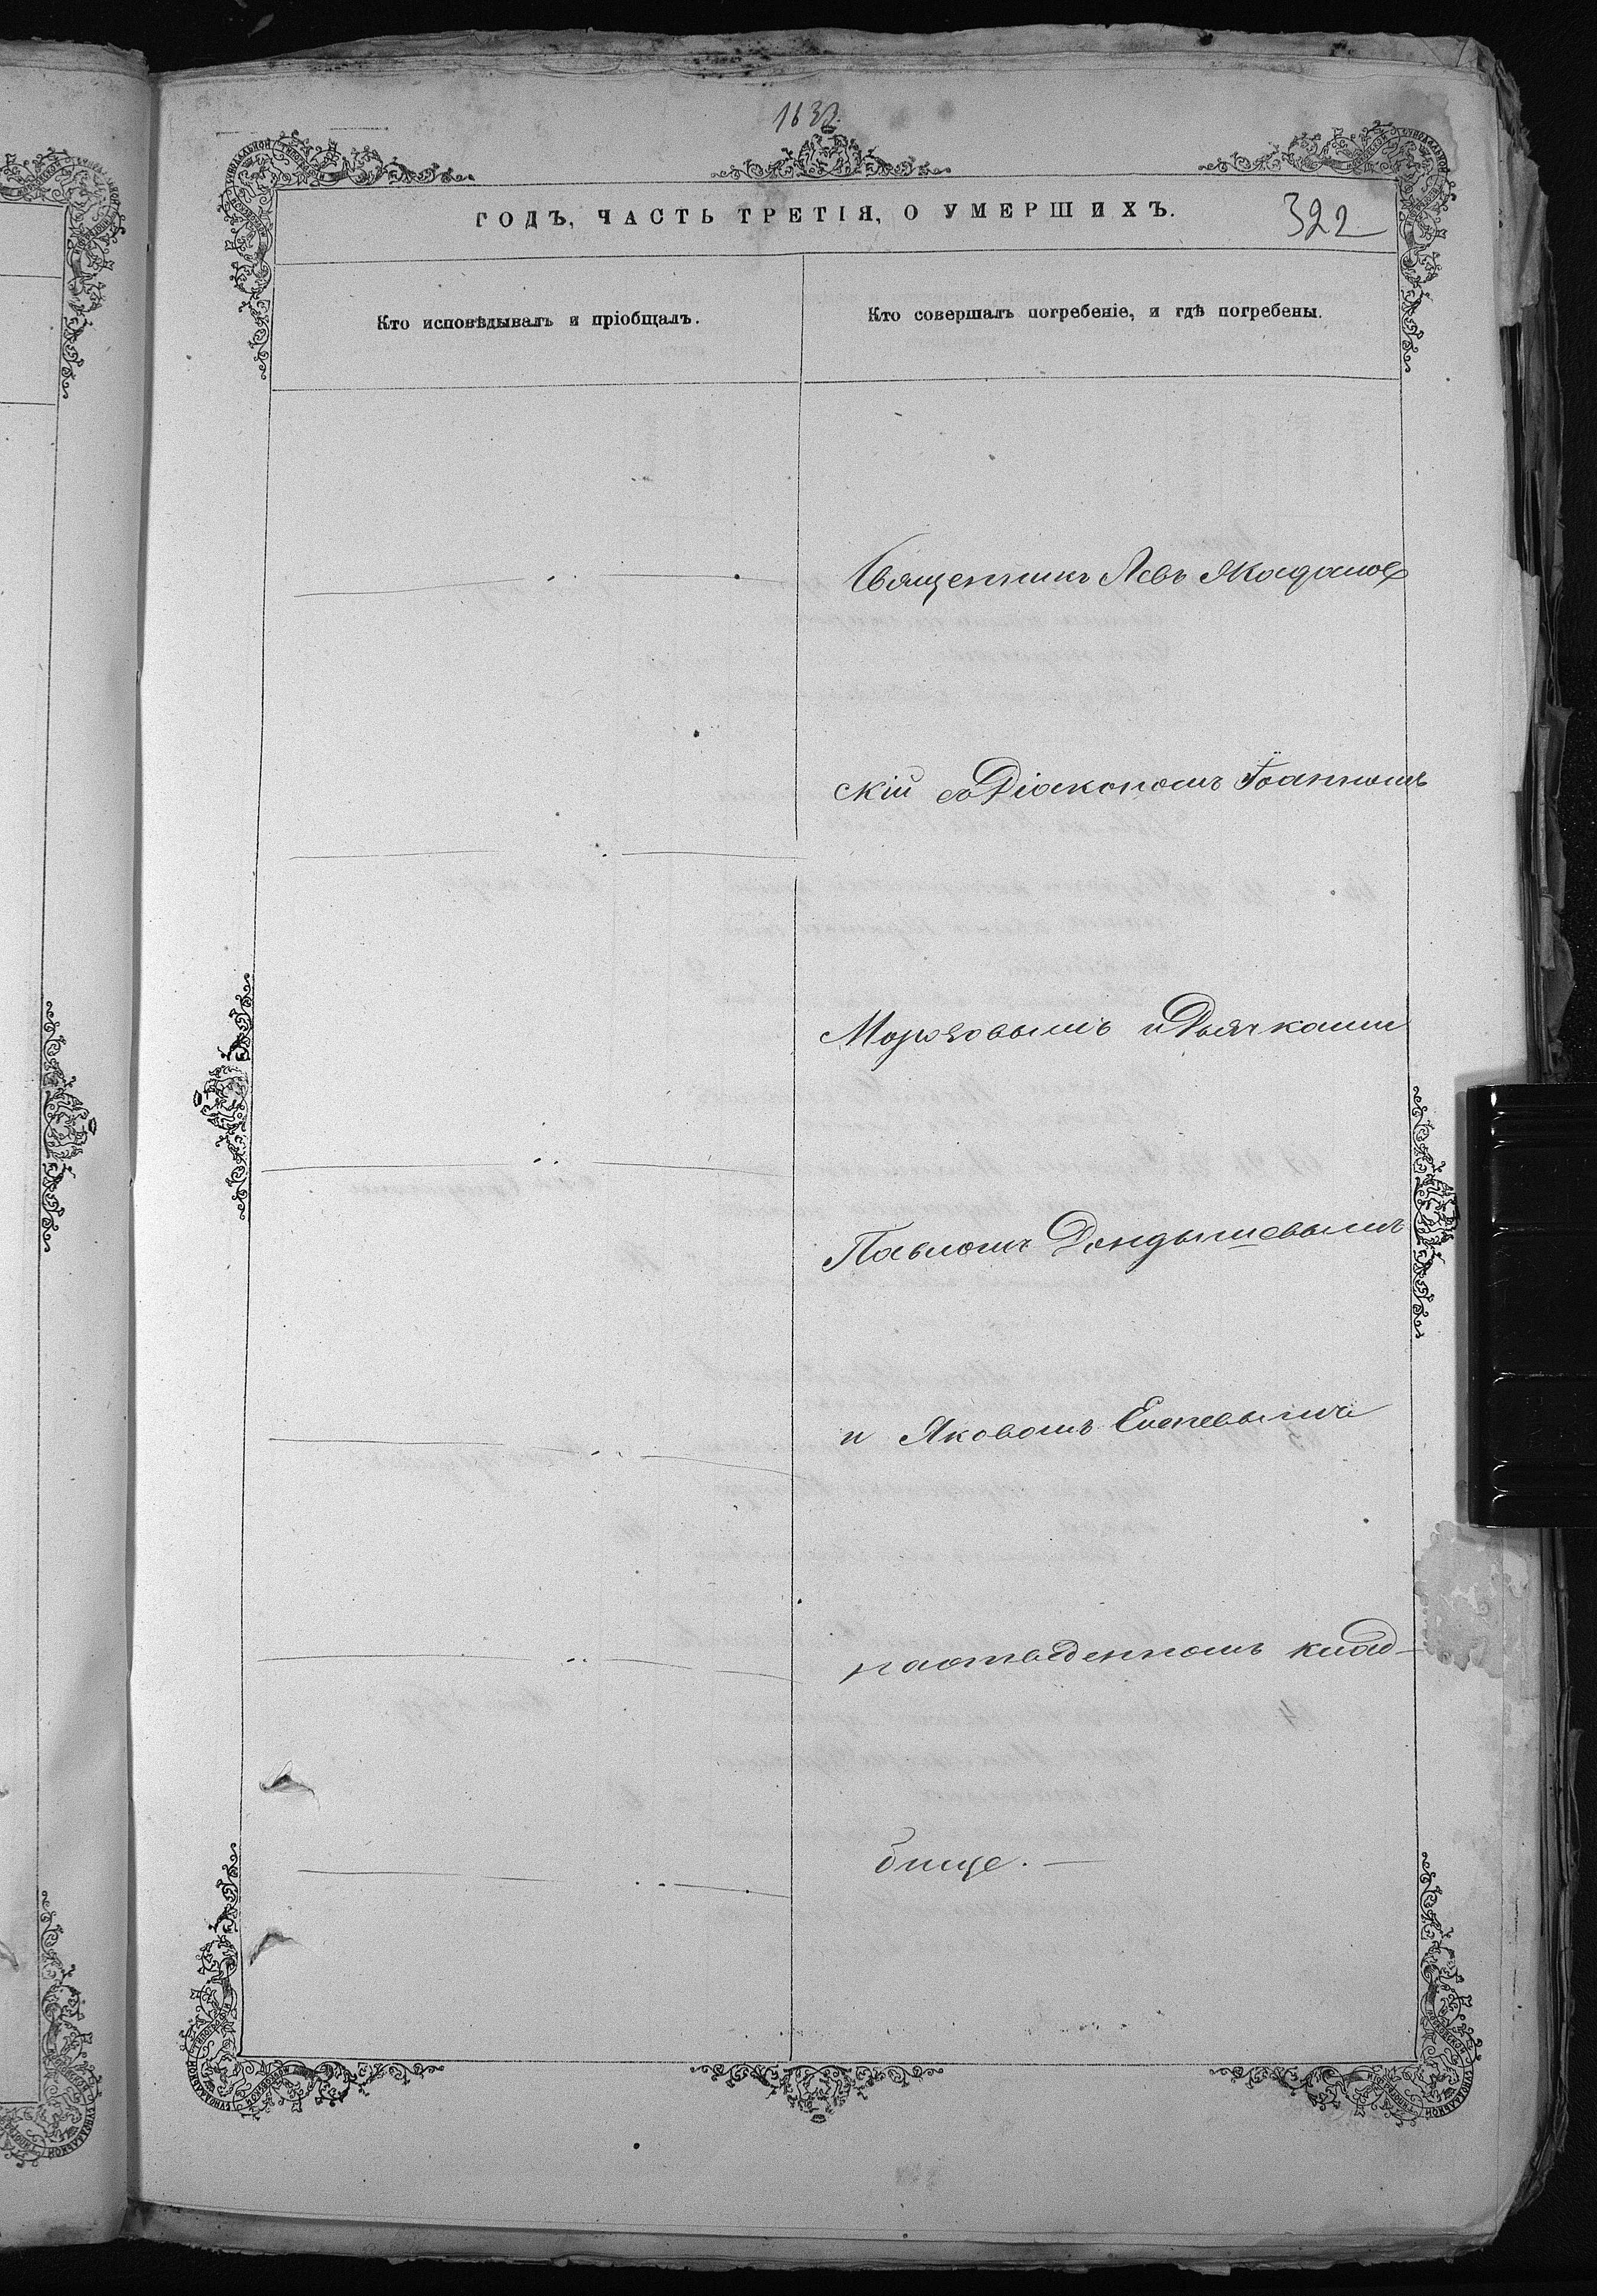 1632
ГОДЪ, ЧАСТЬ ТРЕТІЯ, О УМЕРШИХЪ.
322
Кто исповѣдывалъ и пріобщалъ.
Кто совершалъ погребеніе, и гдѣ погребены.
Священникъ Левъ
скій съ Діакономъ Іоанномъ
Морозовымъ и Дьячками
Павломъ Дендышевымъ
и Яковомъ
на отведенномъ клад-
бище. —